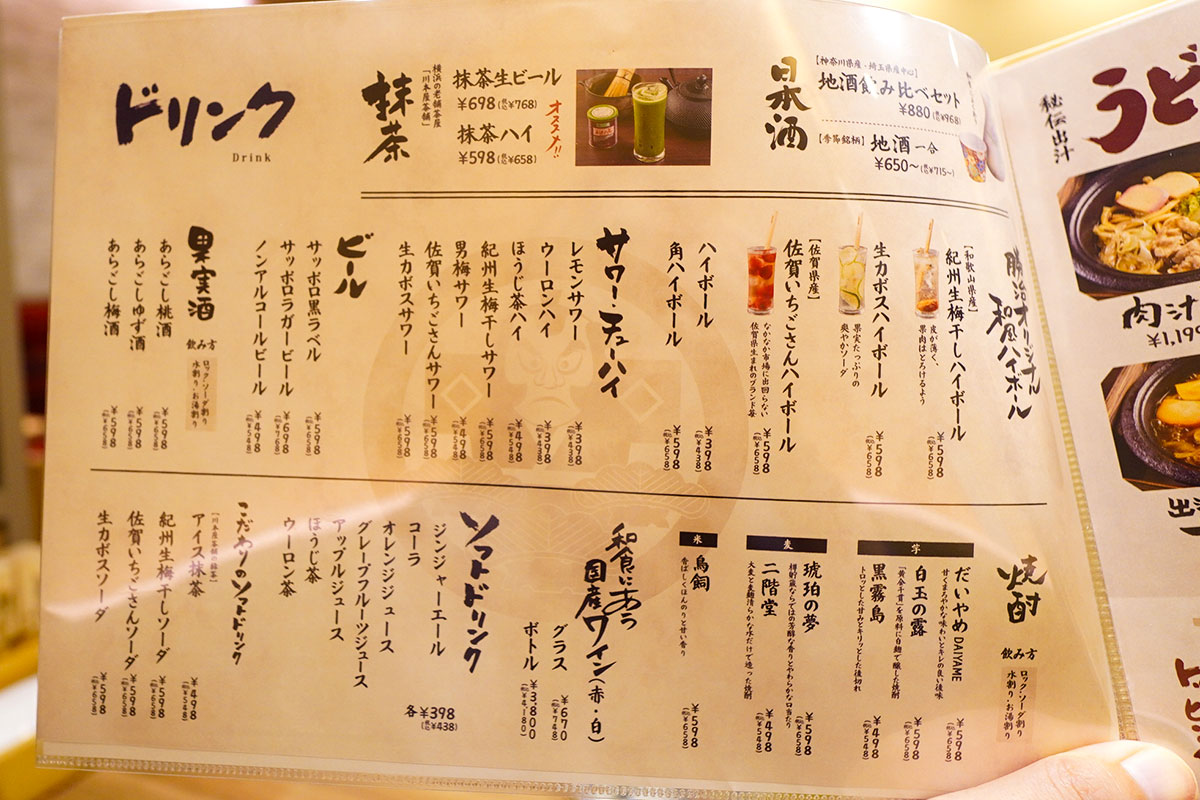 ドリンク
Drink
抹茶
横浜の老舗茶産
「川本屋茶舗」
抹茶生ビール
¥698(税込¥768)
抹茶ハイ
¥598(税込¥658)
オススメ!!
日本酒
【神奈川県産・埼玉県産中心】
地酒飲み比べセット
¥880(税込¥968)
【季節銘柄】地酒 一合
¥650〜(税込¥715〜)
勝治オリジナル
和風ハイボール
【和歌山県産】
紀州生梅干しハイボール
皮が薄く、
果肉はとろけるよう
¥598
(税込¥658)
生カボスハイボール
果実たっぷりの
爽やかソーダ
¥598
(税込¥658)
【佐賀県産】
佐賀いちごさんハイボール
なかなか市場に出回らない
佐賀県生まれのブランド苺
¥598
(税込¥658)
ハイボール
¥398
(税込¥438)
角ハイボール
¥598
(税込¥658)
サワー・チューハイ
レモンサワー
¥398
(税込¥438)
ウーロンハイ
¥398
(税込¥438)
ほうじ茶ハイ
¥498
(税込¥548)
紀州生梅干しサワー
¥598
(税込¥658)
男梅サワー
¥498
(税込¥548)
佐賀いちごさんサワー
¥598
(税込¥658)
生カボスサワー
¥598
(税込¥658)
ビール
サッポロ黒ラベル
¥598
(税込¥658)
サッポロラガービール
¥698
(税込¥768)
ノンアルコールビール
¥498
(税込¥548)
果実酒
飲み方
ロック・ソーダ割り
水割り・お湯割り
あらごし桃酒
¥598
(税込¥658)
あらごしゆず酒
¥598
(税込¥658)
あらごし梅酒
¥598
(税込¥658)
焼酎
飲み方
ロック・ソーダ割り
水割り・お湯割り
芋
だいやめ DAIYAME
甘くまろやかな味わいとキレの良い後味
¥598
(税込¥658)
白玉の露
「黄金千貫」を原料に白麹で醸した焼酎
¥598
(税込¥658)
黒霧島
トロッとした甘みとキリッとした後切れ
¥498
(税込¥548)
麦
琥珀の夢
樽貯蔵ならではの芳醇な香りとやわらかな口当たり
¥598
(税込¥658)
二階堂
大麦と麦麹清らかな水だけで造った焼酎
¥498
(税込¥548)
米
鳥飼
香ばしくほんのりと甘い香り
¥598
(税込¥658)
和食にあう
国産ワイン(赤・白)
グラス
¥670
(税込¥748)
ボトル
¥3,800
(税込¥4,180)
ソフトドリンク
ジンジャーエール
コーラ
オレンジジュース
グレープフルーツジュース
アップルジュース
ほうじ茶
ウーロン茶
各¥398
(税込¥438)
こだわりのソフトドリンク
【川本屋茶舗の銘茶】
アイス抹茶
¥498
(税込¥548)
紀州生梅干しソーダ
¥598
(税込¥658)
佐賀いちごさんソーダ
¥598
(税込¥658)
生カボスソーダ
¥598
(税込¥658)
うど
秘伝出汁
肉汁
¥1,19
出汁